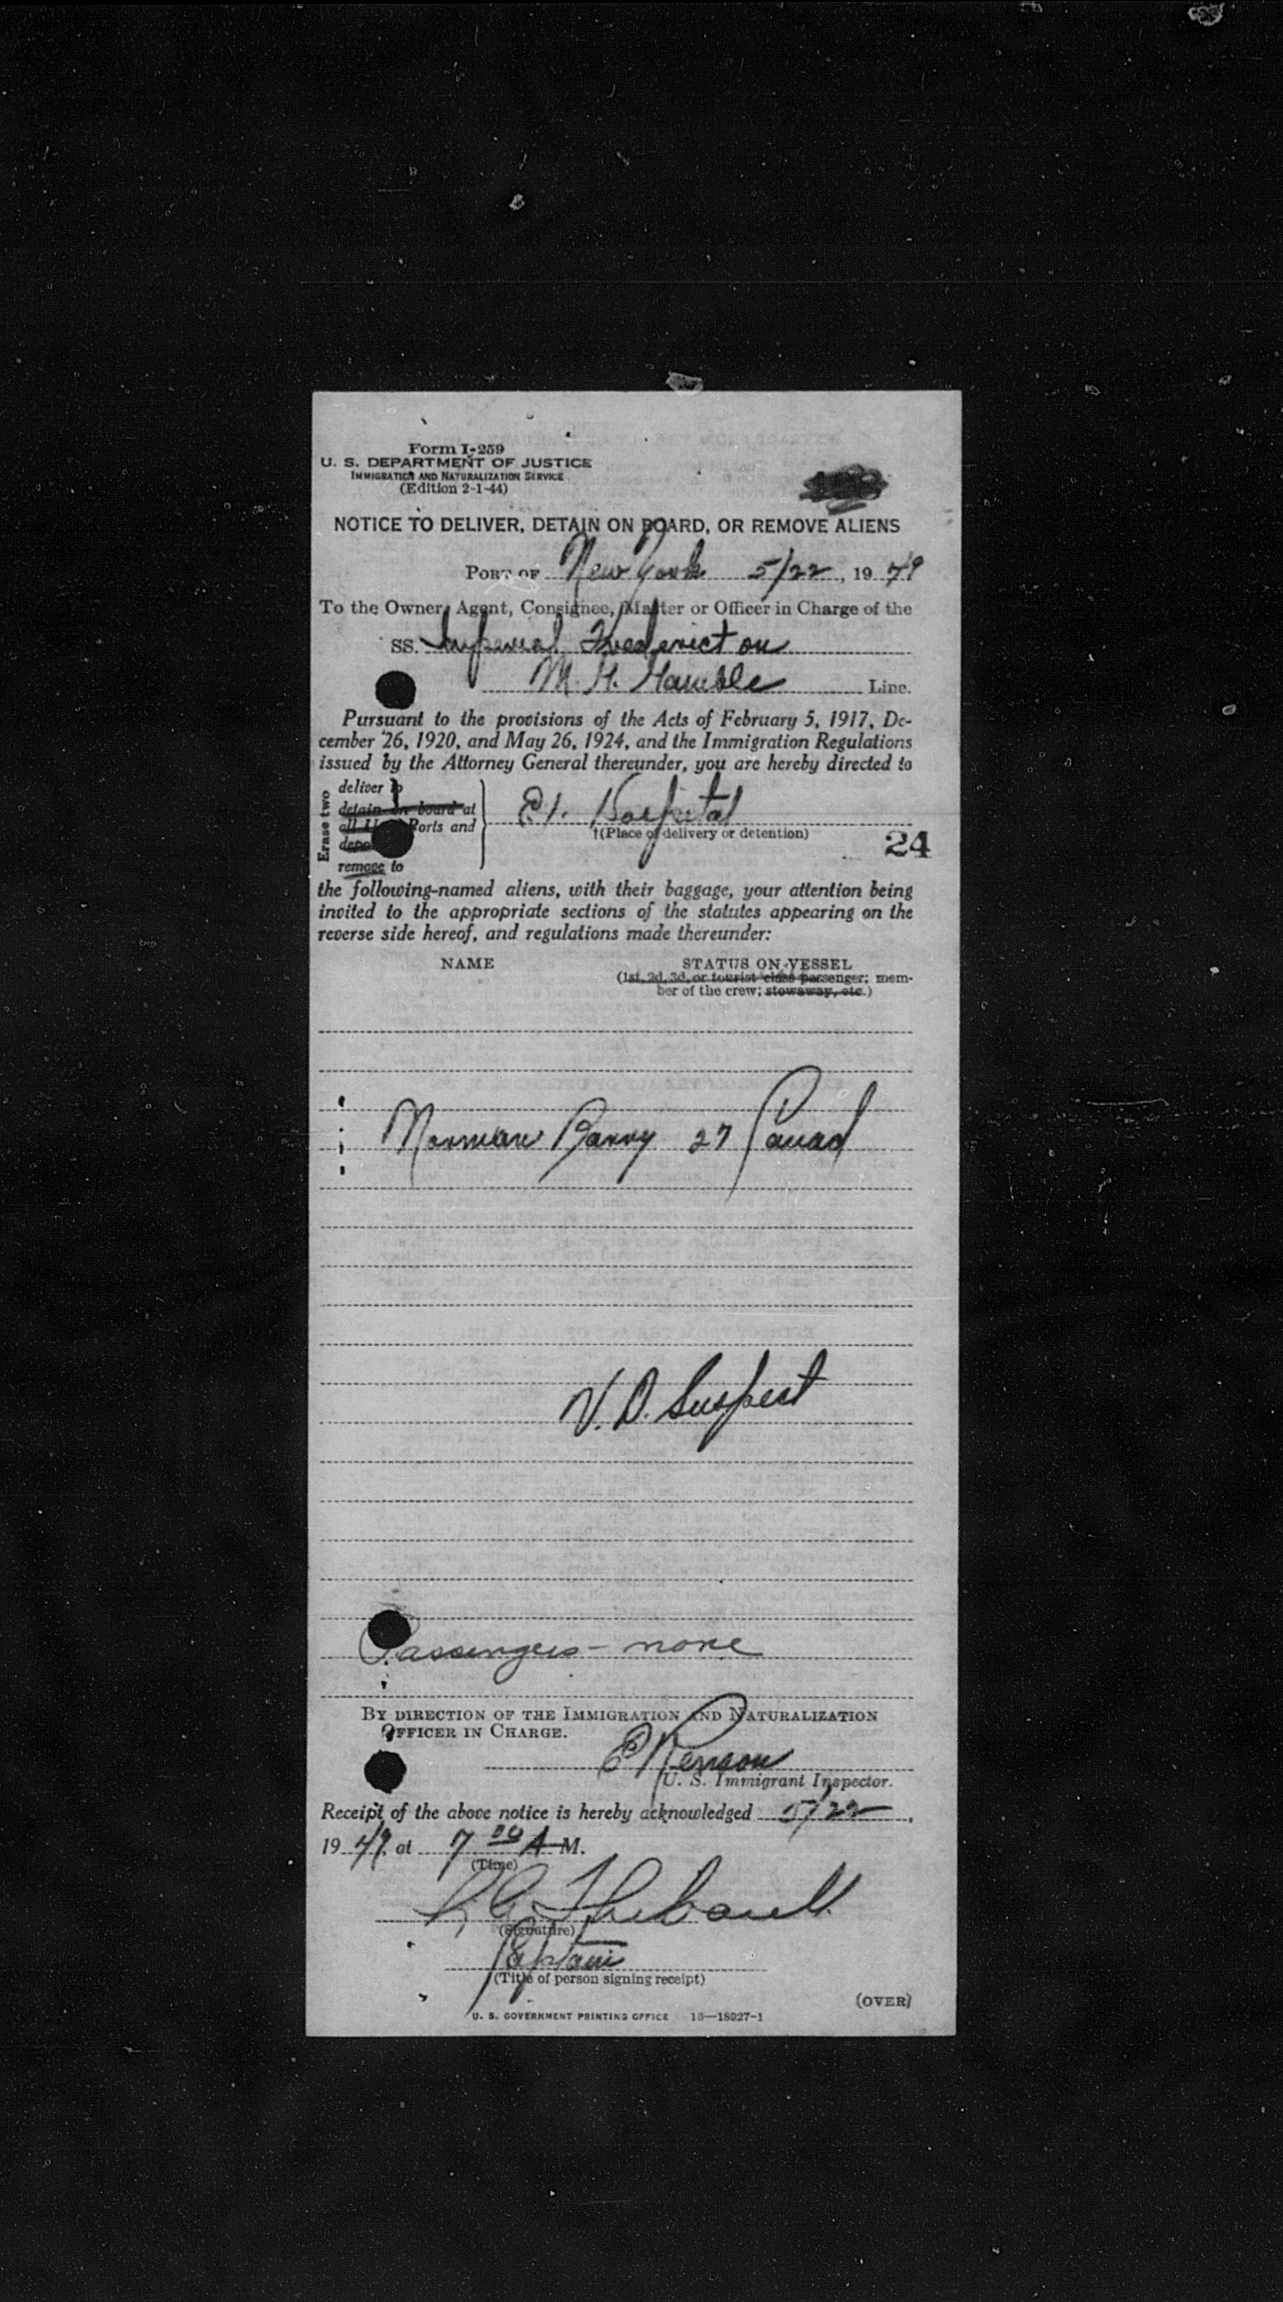 Form I-259
U. S. DEPARTMENT OF JUSTICE
IMMIGRATION AND NATURALIZATION SERVICE
(Edition 2-1-44)
NOTICE TO DELIVER, DETAIN ON BOARD, OR REMOVE ALIENS
PORT OF New York 5/22, 19 49
To the Owner, Agent, Consignee, Master or Officer in Charge of the
SS. Imperial Fredericton
M. H. Line.
Pursuant to the provisions of the Acts of February 5, 1917, De-
cember 26, 1920, and May 26, 1924, and the Immigration Regulations
issued by the Attorney General thereunder, you are hereby directed to
Erase two
deliver to
detain on board at
all Ports and
remove to
E. I. Hospital
†(Place of delivery or detention)
24
the following-named aliens, with their baggage, your attention being
invited to the appropriate sections of the statutes appearing on the
reverse side hereof, and regulations made thereunder:
NAME STATUS ON VESSEL
(1st, 2d, 3d, or tourist class passenger; mem-
ber of the crew; stowaway, etc.)
Norman Barry 27 Canad
V. D. Suspect
Passengers - none
BY DIRECTION OF THE IMMIGRATION AND NATURALIZATION
OFFICER IN CHARGE.
U. S. Immigrant Inspector.
Receipt of the above notice is hereby acknowledged 5/22,
19 49 at 7 00 A M.
(Time)
Thebault
(Signature)
Captain
(Title of person signing receipt)
(OVER)
U. S. GOVERNMENT PRINTING OFFICE 16—18927-1